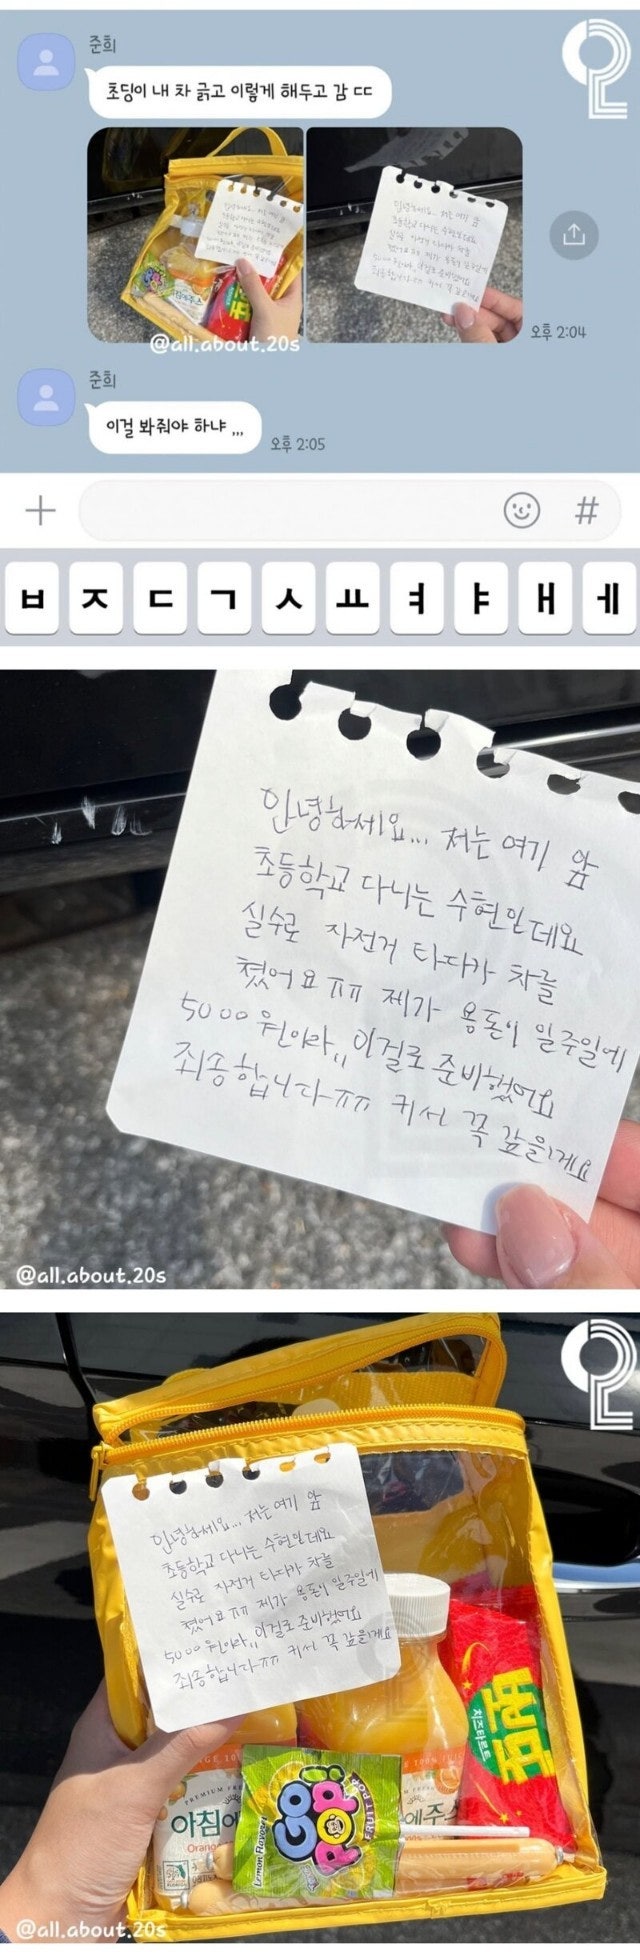 준희
초딩이 내 차 긁고 이렇게 해두고 감 ㄷㄷ
@all.about.20s
오후 2:04
준희
이걸 봐줘야 하냐 ,,,
오후 2:05
#
ㅂ ㅈ ㄷ ㄱ ㅅ ㅛ ㅕ ㅑ ㅐ ㅔ
안녕하세요... 저는 여기 앞
초등학교 다니는 수현인데요
실수로 자전거 타다가 차를
쳤어요 ㅠㅠ 제가 용돈이 일주일에
5000원이라,, 이걸로 준비했어요
죄송합니다ㅠㅠ 커서 꼭 갚을게요
@all.about.20s
안녕하세요... 저는 여기 앞
초등학교 다니는 수현인데요
실수로 자전거 타다가 차를
쳤어요 ㅠㅠ 제가 용돈이 일주일에
5000원이라,, 이걸로 준비했어요
죄송합니다ㅠㅠ 커서 꼭 갚을게요
치즈타르트
PREMIUM
아침에
Orang
에주스
GO! POP!
FRUIT POP
Lemon Flavored
@all.about.20s